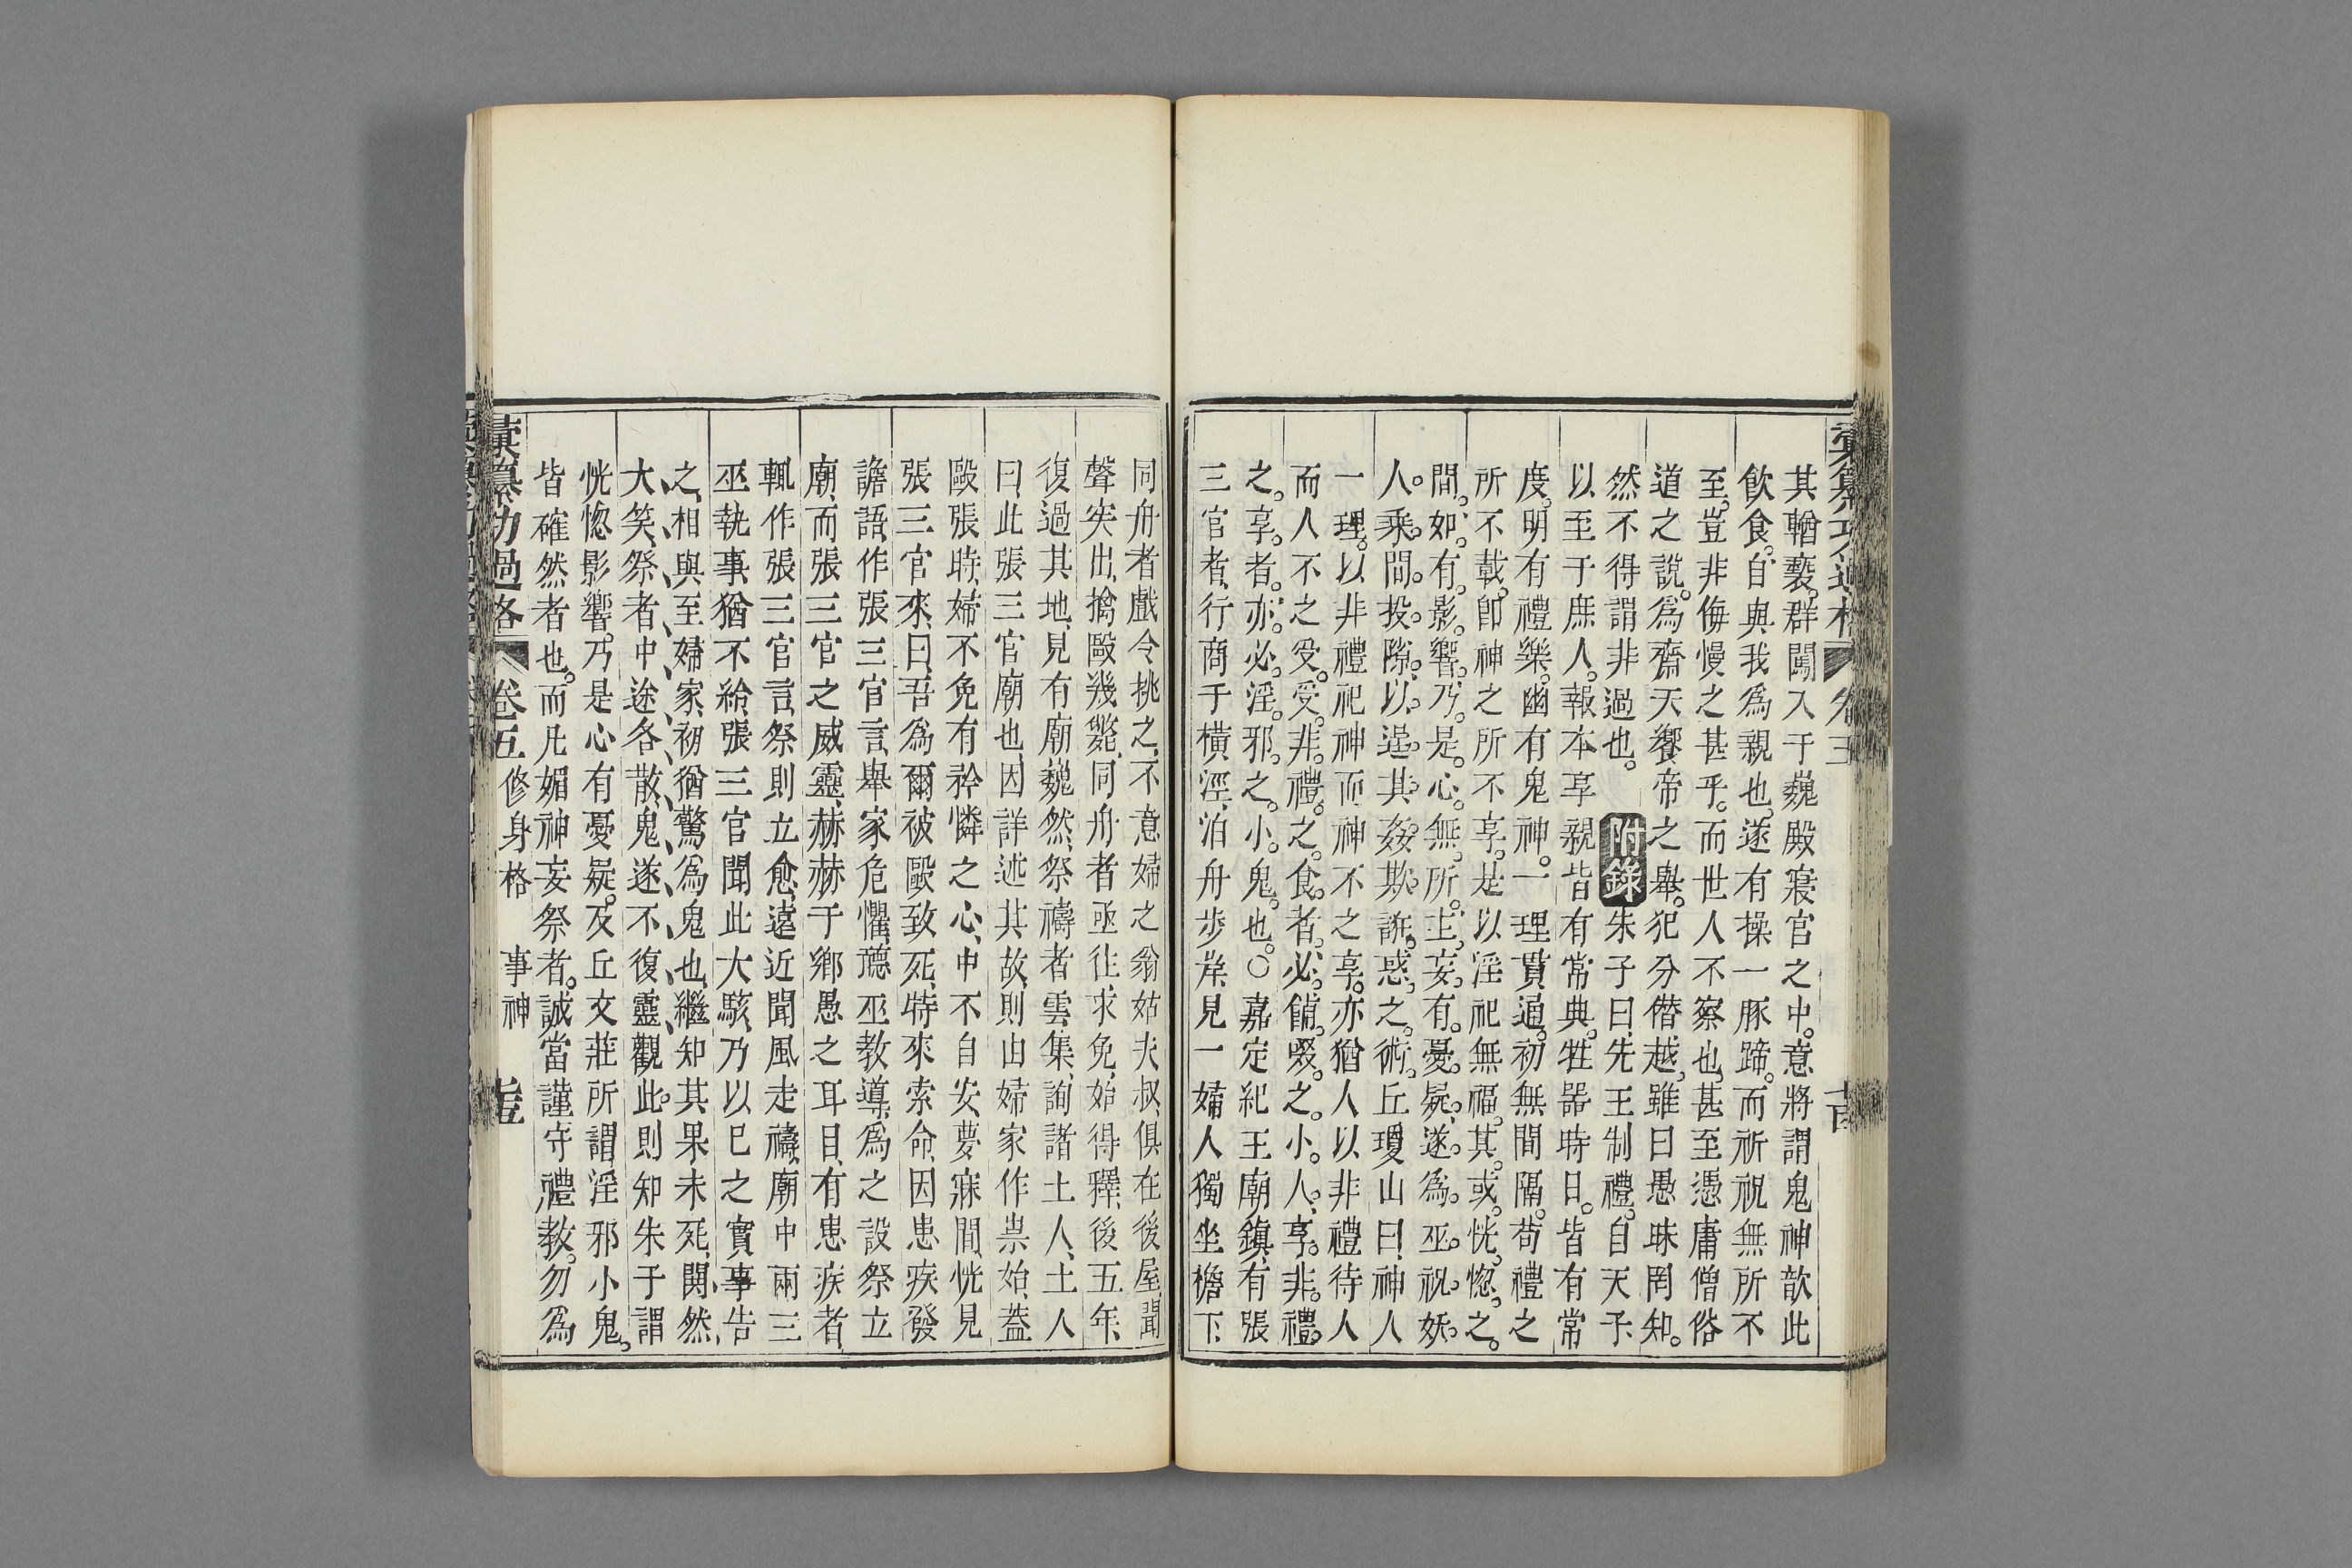 其輶褻群闖入于巍殿寢宮之中。意將謂鬼神歆此
飲食。自與我爲親也。遂有操一豚蹄。而祈祝無所不
至。豈非侮慢之甚乎。而世人不察也。甚至憑庸僧俗
道之說。爲齋天饗帝之舉。犯分僭越。雖曰愚昧罔知。
然不得謂非過也。附錄朱子曰、先王制禮。自天子、
以至于庶人。報本享親皆有常典。牲器時日。皆有常
度。明有禮樂。幽有鬼神。一理貫通。初無間隔。苟禮之
所不載。卽神之所不享。是以淫祀無福。其。或。恍。惚。之。
間。如。有。影。響。乃。是。心。無。所。主。妄。有。憂。疑。遂。爲。巫。祝。妖。
人。乘。間。投。隙。以。逞。其。姦。欺。誑。惑。之。術。丘瓊山曰、神人
一理。以非禮祀神而神不之享。亦猶人以非禮待人
而人不之受。受。非。禮。之。食。者。必。餔。啜。之。小。人。享。非。禮。
之。享。者。亦。必。淫。邪。之。小。鬼。也。○嘉定紀王廟鎮、有張
三官者、行商于橫涇、泊舟步岸、見一婦人獨坐檐下、
同舟者戲令挑之、不意婦之翁姑夫叔、俱在後屋、聞
聲突出、擒毆幾斃、同舟者亟往求免、始得釋、後五年、
復過其地、見有廟巍然、祭禱者雲集、詢諸土人、土人
曰、此張三官廟也、因詳述其故、則由婦家作祟始、蓋
毆張時、婦不免有矜憐之心、中不自安、夢寐間、恍見
張三官來、曰、吾爲爾被毆致死、特來索命、因患疾發
譫語、作張三官言、舉家危懼、聽巫教導、爲之設祭立
廟、而張三官之威靈、赫赫于鄉愚之耳目、有患疾者、
輒作張三官言、祭則立愈、遠近聞風走禱、廟中兩三
巫執事、猶不給、張三官聞此大駭、乃以巳之實事告
之、相與至婦家、初猶驚爲鬼也、繼知其果未死、鬨然
大笑、祭者中途各散、鬼遂不復靈、觀此。則知朱子謂
恍惚影響。乃是心有憂疑。及丘文莊所謂淫邪小鬼。
皆確然者也。而凡媚神妄祭者。誠當謹守禮教。勿爲
彙纂功過格 卷五 修身格 事神